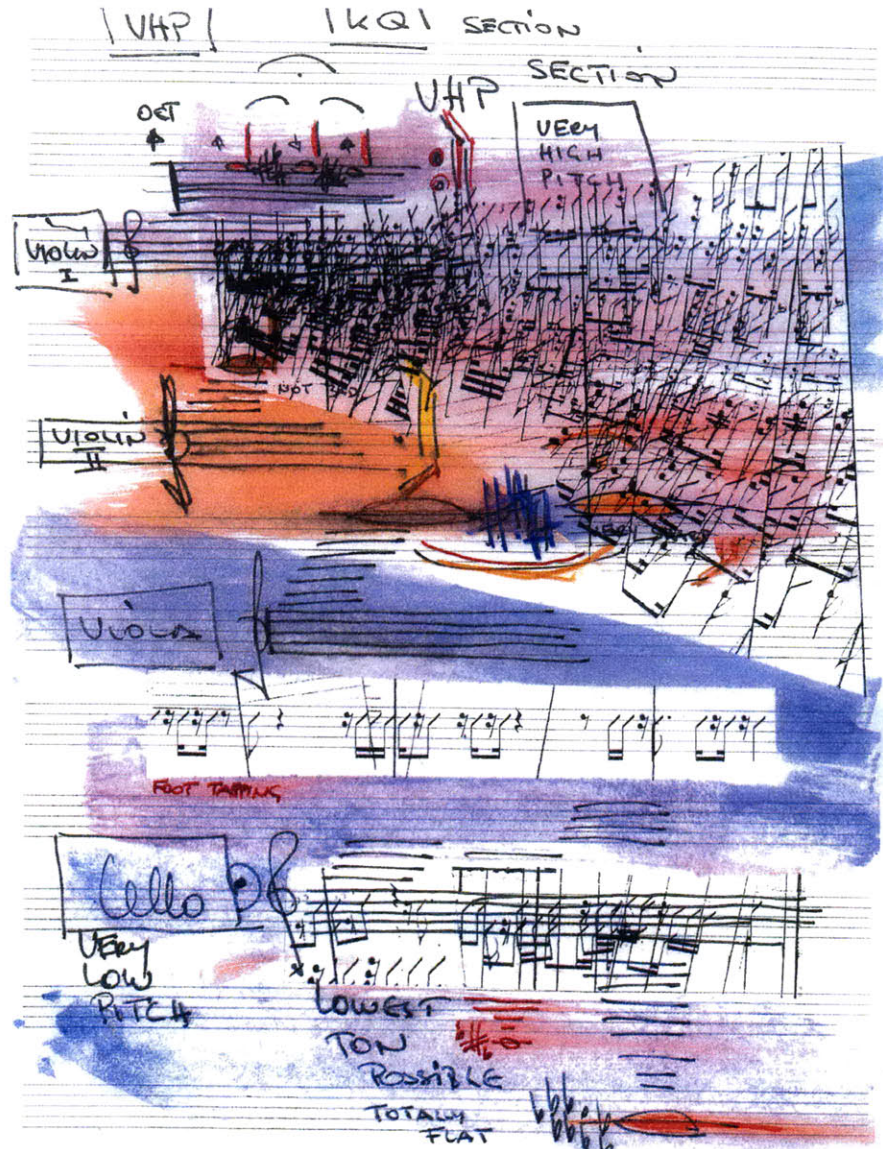 VHP |KQ| SECTION
SECTION
VHP
OCT
VERY
HIGH
PITCH
VIOLIN
I
NOT
VIOLIN
II
VIOLA
FOOT TAPPING
Cello
VERY
LOW
PITCH
LOWEST
TON
POSSIBLE
TOTALLY
FLAT